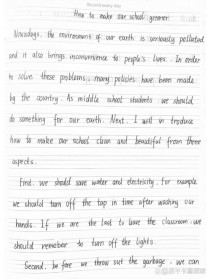 How to make our school greener
Nowadays, the environment of our earth is seriously polluted
and it also brings inconvenience to people's lives. In order
to solve these problems, many policies have been made
by the country. As middle school students we should
do something for our earth. Next, I will in troduce
how to make our school clean and beautiful from three
aspects.
First, we should save water and electricity. For example
we should turn off the tap in time after washing our
hands. If we are the last to leave the classroom, we
should remeber to turn off the lights
Second, be fore we throw out the garbage, we can